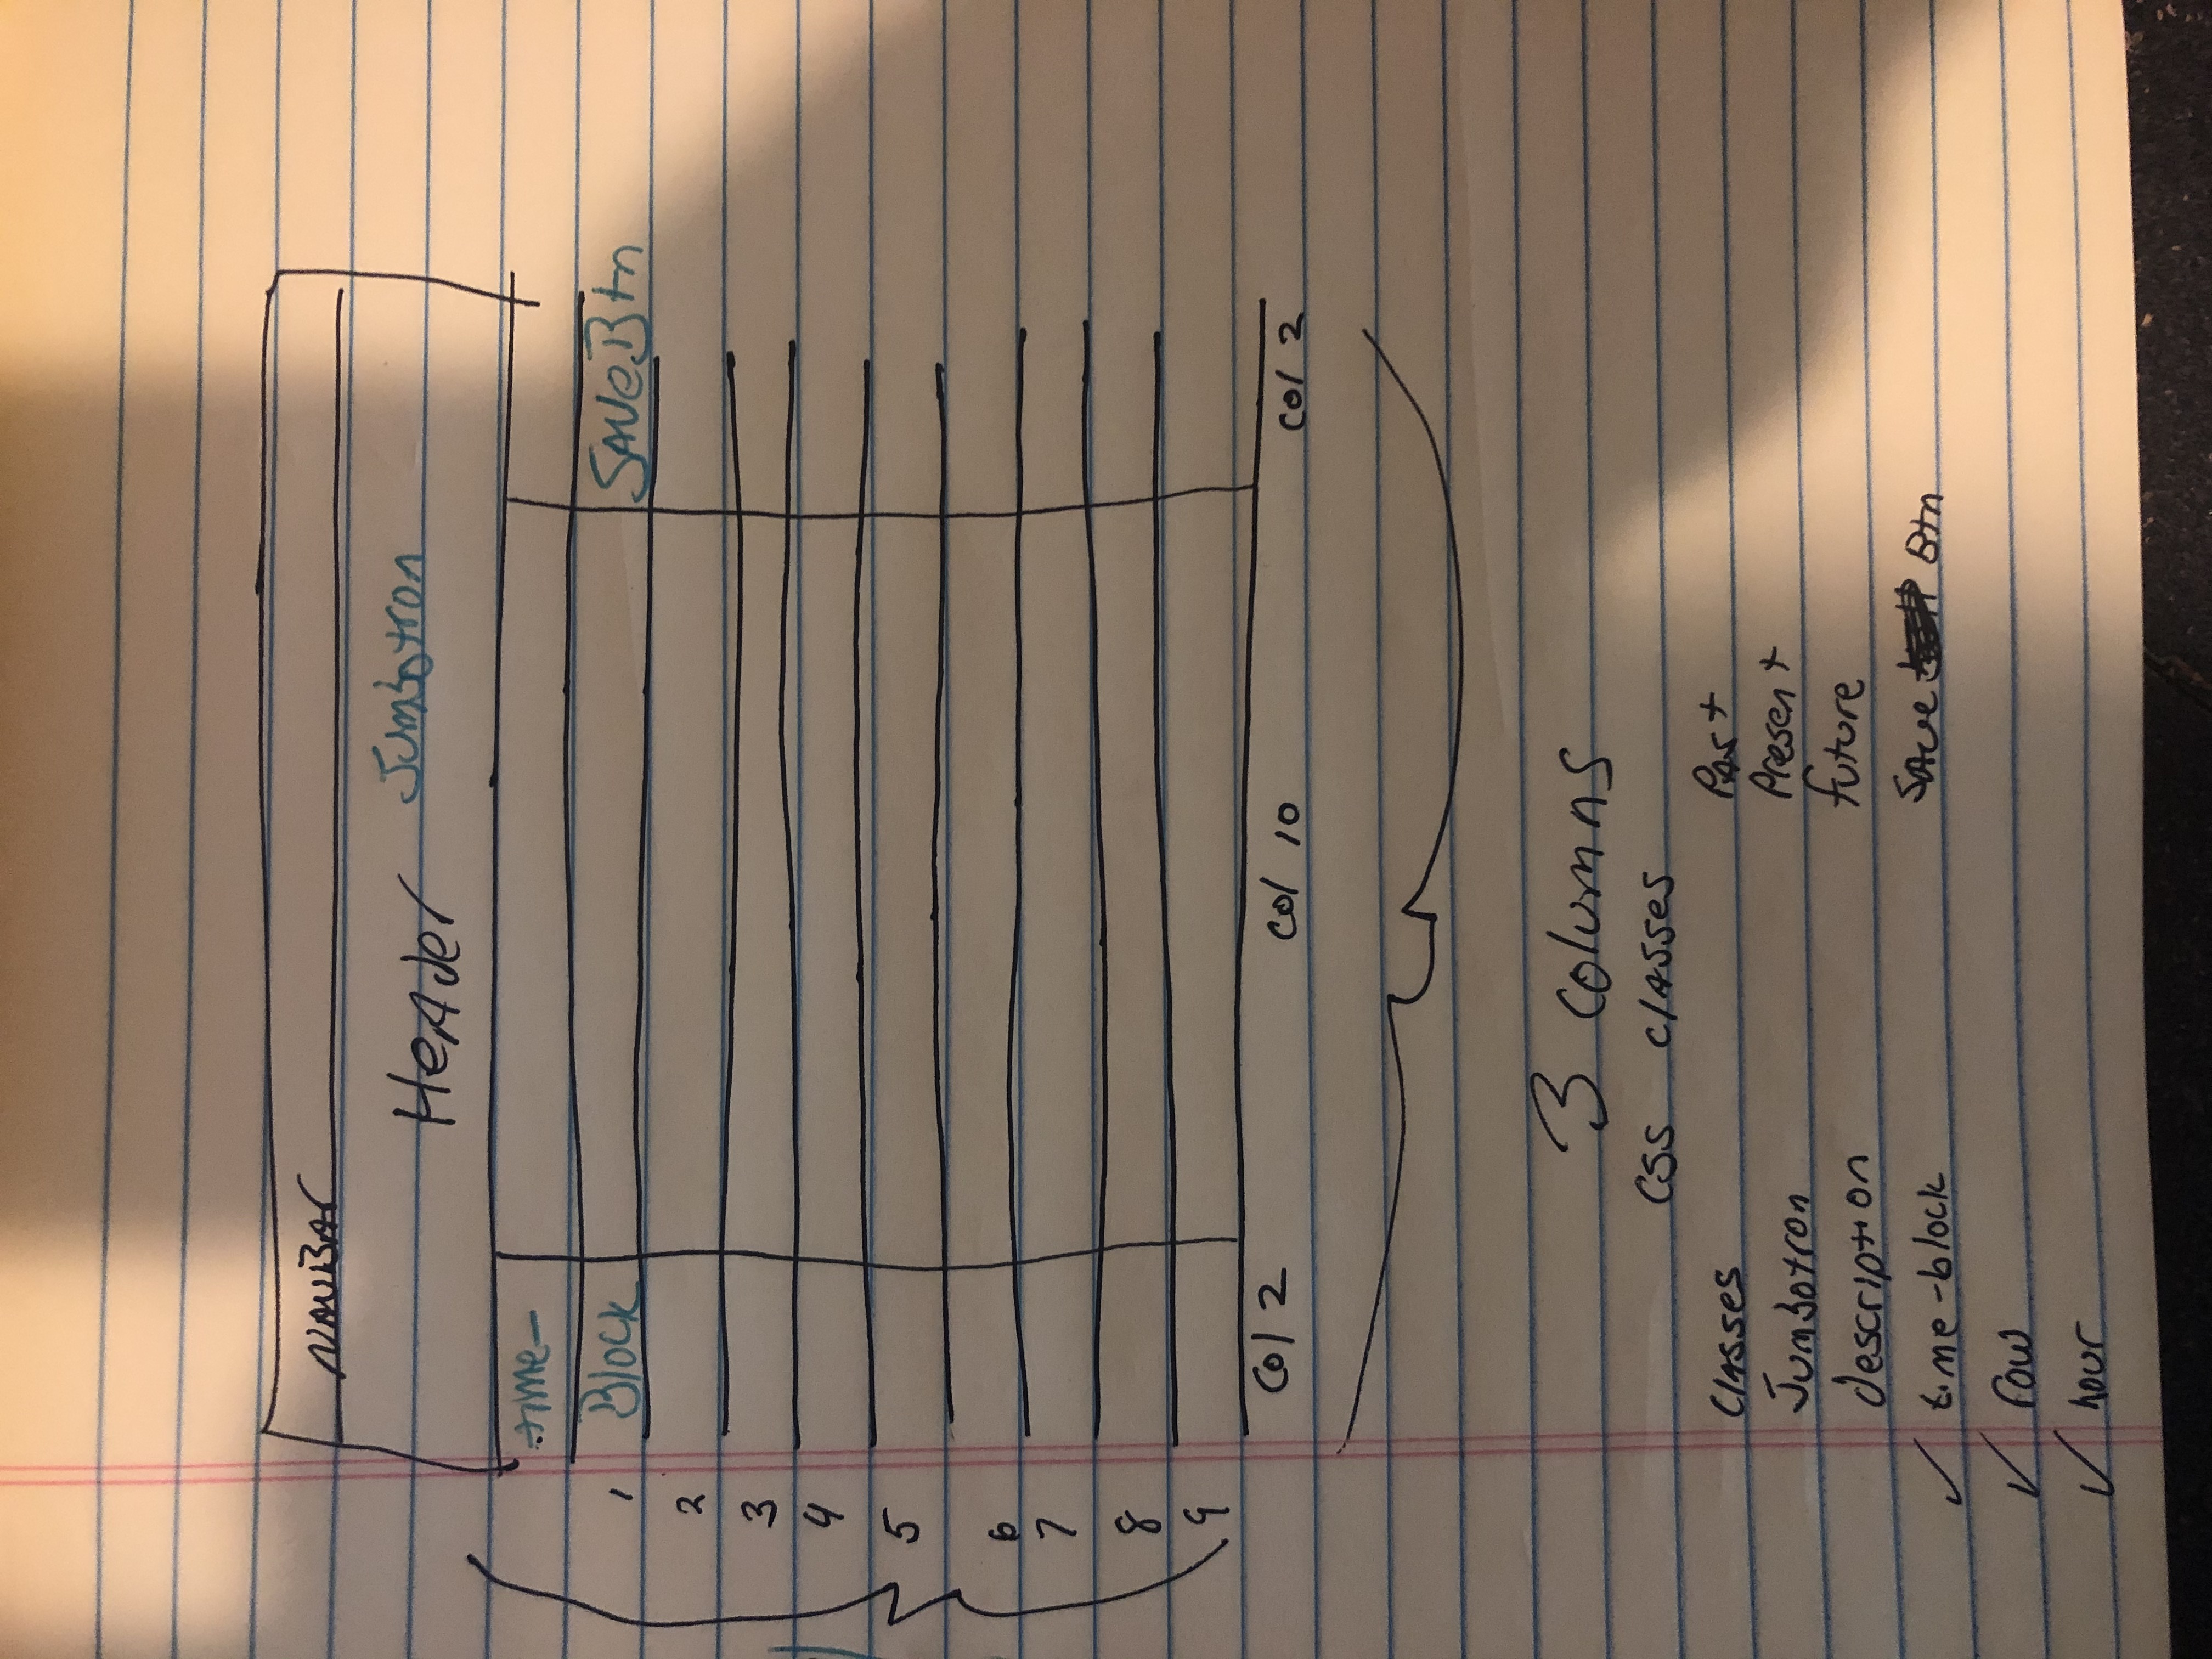 NAVBAr
HeADer Jumbotron
time-
1 Block SAVeBtn
2
3
4
5
6
7
8
9
Col 2 Col 10 Col 2
3 Columns
CSS classes
Classes
Jumbotron
description
time-block
row
hour
PAst
Present
future
SAve Btn